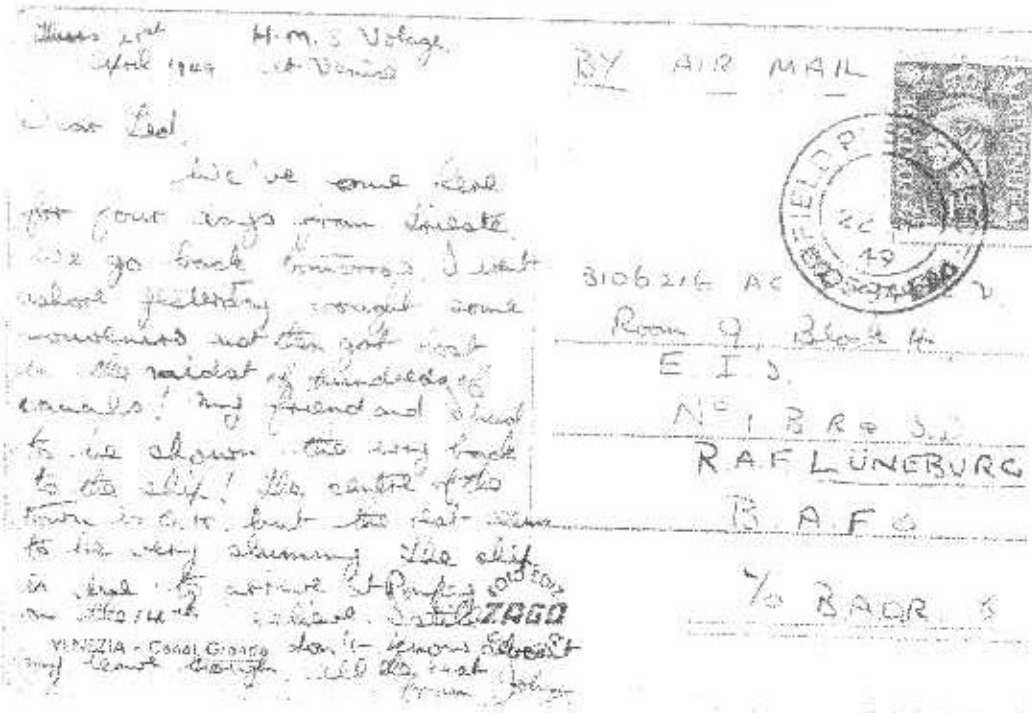 Thurs 21st H.M.S Volage
April 1949 at Venice
Dear Led,
We've come here
for four days from Trieste.
We go back tomorrow. I went
ashore yesterday bought some
souvenirs and then got lost
in the midst of hundreds of
canals! My friend and I had
to be shown the way back
to the ship! The centre of the
town is O.K. but the rest seems
to be very slummy. The ship
is due to arrive at
on the 14th I still
don't know about
my leave though. All the best
from John
VENEZIA - Canal Grande
FOTO EDIZ
ZAGO
BY AIR MAIL
FIELD POST OFFICE
22
49
3106216 AC
Room 9, Block 4
E. I. S.
No 1 B R D
R.A.F LÜNEBURG
B. A. F O
c/o BAOR. 5